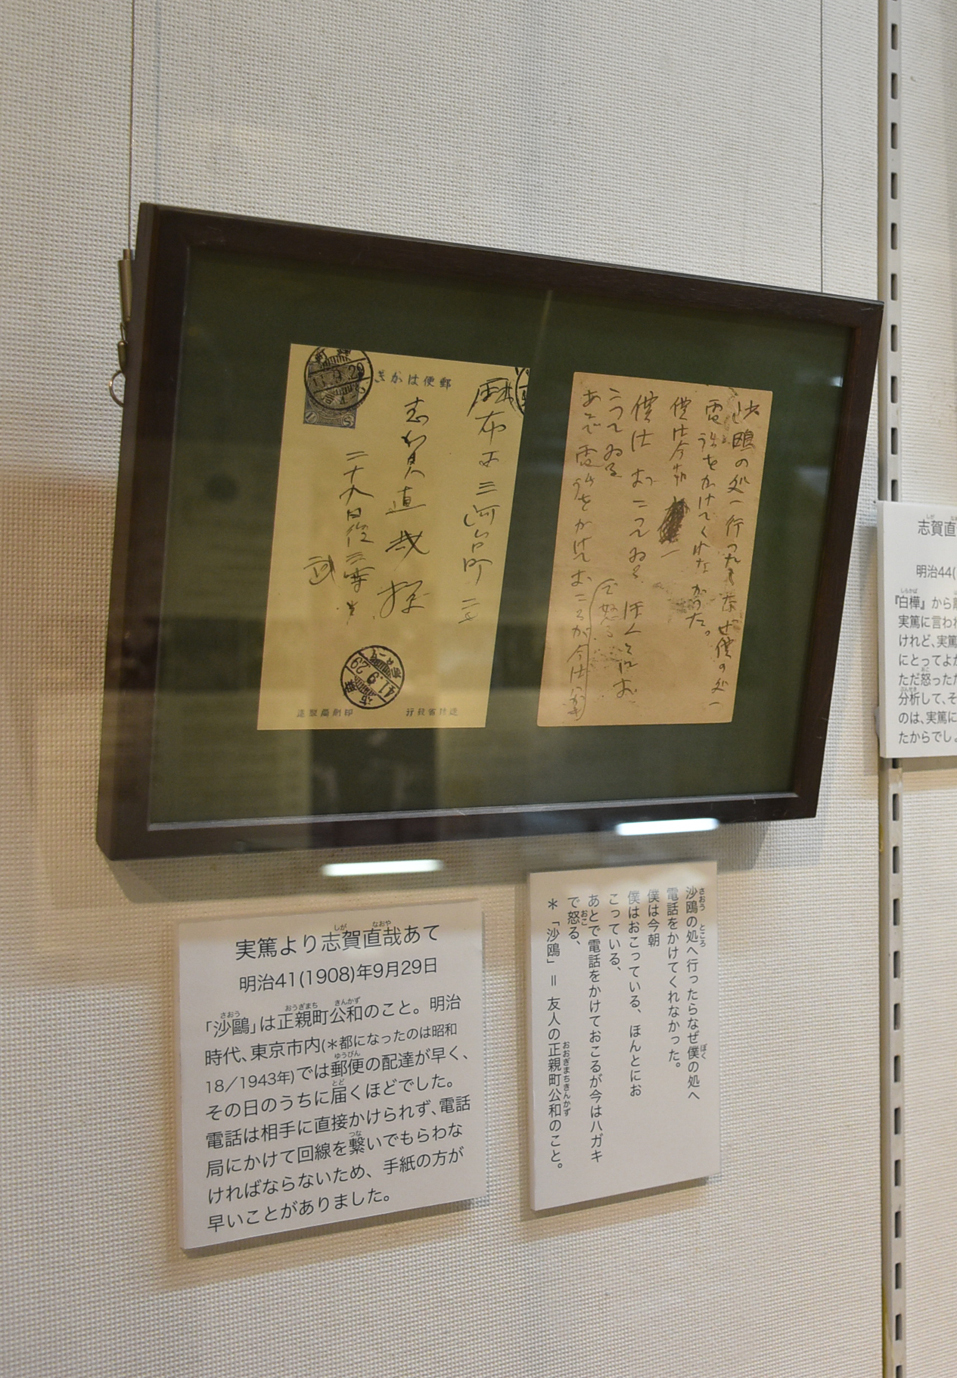 郵便はかき
麻布区三河台町二三
志賀直哉様
二十九日
武
41.9.29
沙鷗の処へ行つたらなぜ僕の処へ
電話をかけてくれなかつた。
僕は今朝
僕はおこつてゐる ほんとにお
こつてゐる
あとで電話をかけておこるが今はハガキ
で怒る
実篤より志賀直哉あて
明治41(1908)年9月29日
「沙鷗」は正親町公和のこと。明治
時代、東京市内(＊都になったのは昭和
18／1943年)では郵便の配達が早く、
その日のうちに届くほどでした。
電話は相手に直接かけられず、電話
局にかけて回線を繋いでもらわな
ければならないため、手紙の方が
早いことがありました。
沙鷗の処へ行ったらなぜ僕の処へ
電話をかけてくれなかった。
僕は今朝
僕はおこっている、ほんとにお
こっている、
あとで電話をかけておこるが今はハガキ
で怒る、
＊「沙鷗」＝友人の正親町公和のこと。
志賀直
明治44(
『白樺』から
実篤に言われ
けれど、実篤
にとってよか
ただ怒っただ
分析して、そ
のは、実篤に
たからでし